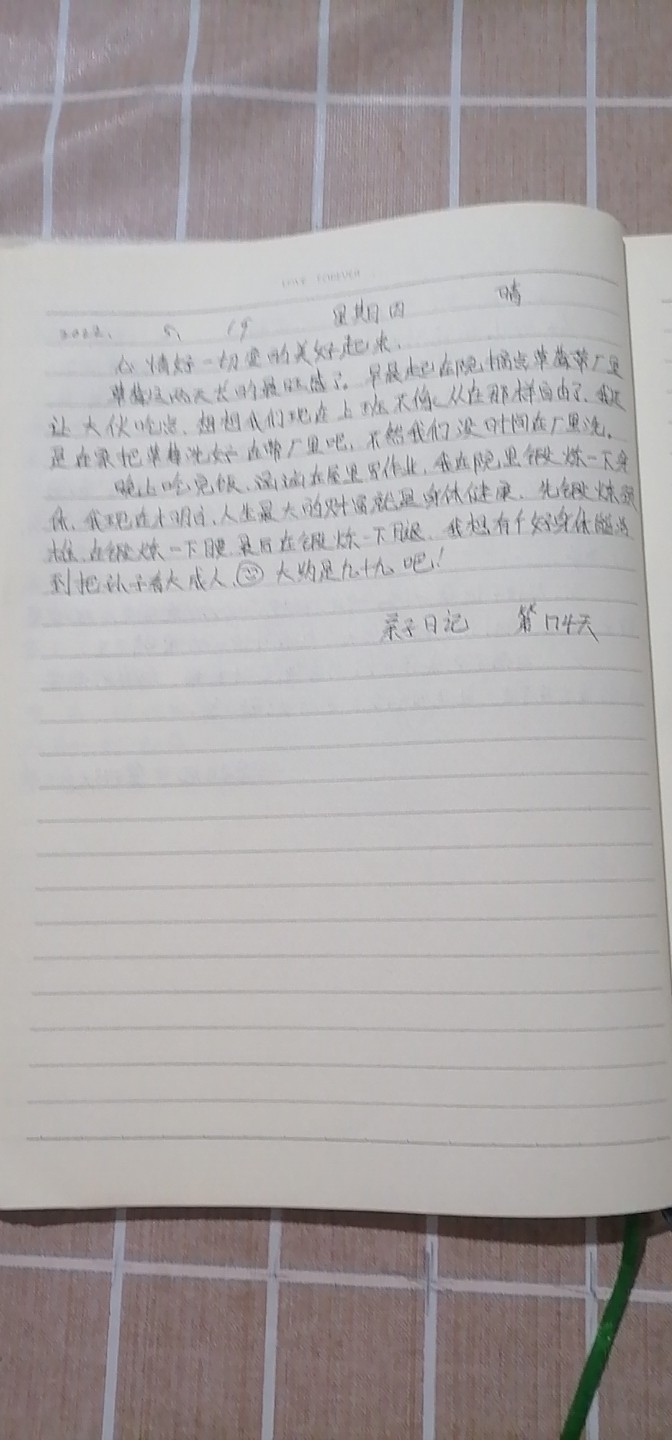 LOVE FOREVER
2022. 5. 19 星期四 晴
心情好一切变的美好起来.
草莓这两天长的最旺盛了. 早晨起在院摘点草莓带厂里
让大伙吃点. 想想我们现在上班不像从在那样自由了. 我还
是在家把草莓洗好在带厂里吧, 不然我们没时间在厂里洗.
晚上吃完饭, 在屋里写作业, 我在院里锻炼一下身
体, 我现在才明白, 人生最大的财富就是身体健康. 先锻炼
在锻炼一下腰, 最后在锻炼一下腿. 我想有个好身体能
到把孩子看大成人. 大约是九十九吧!
亲子日记 第174天